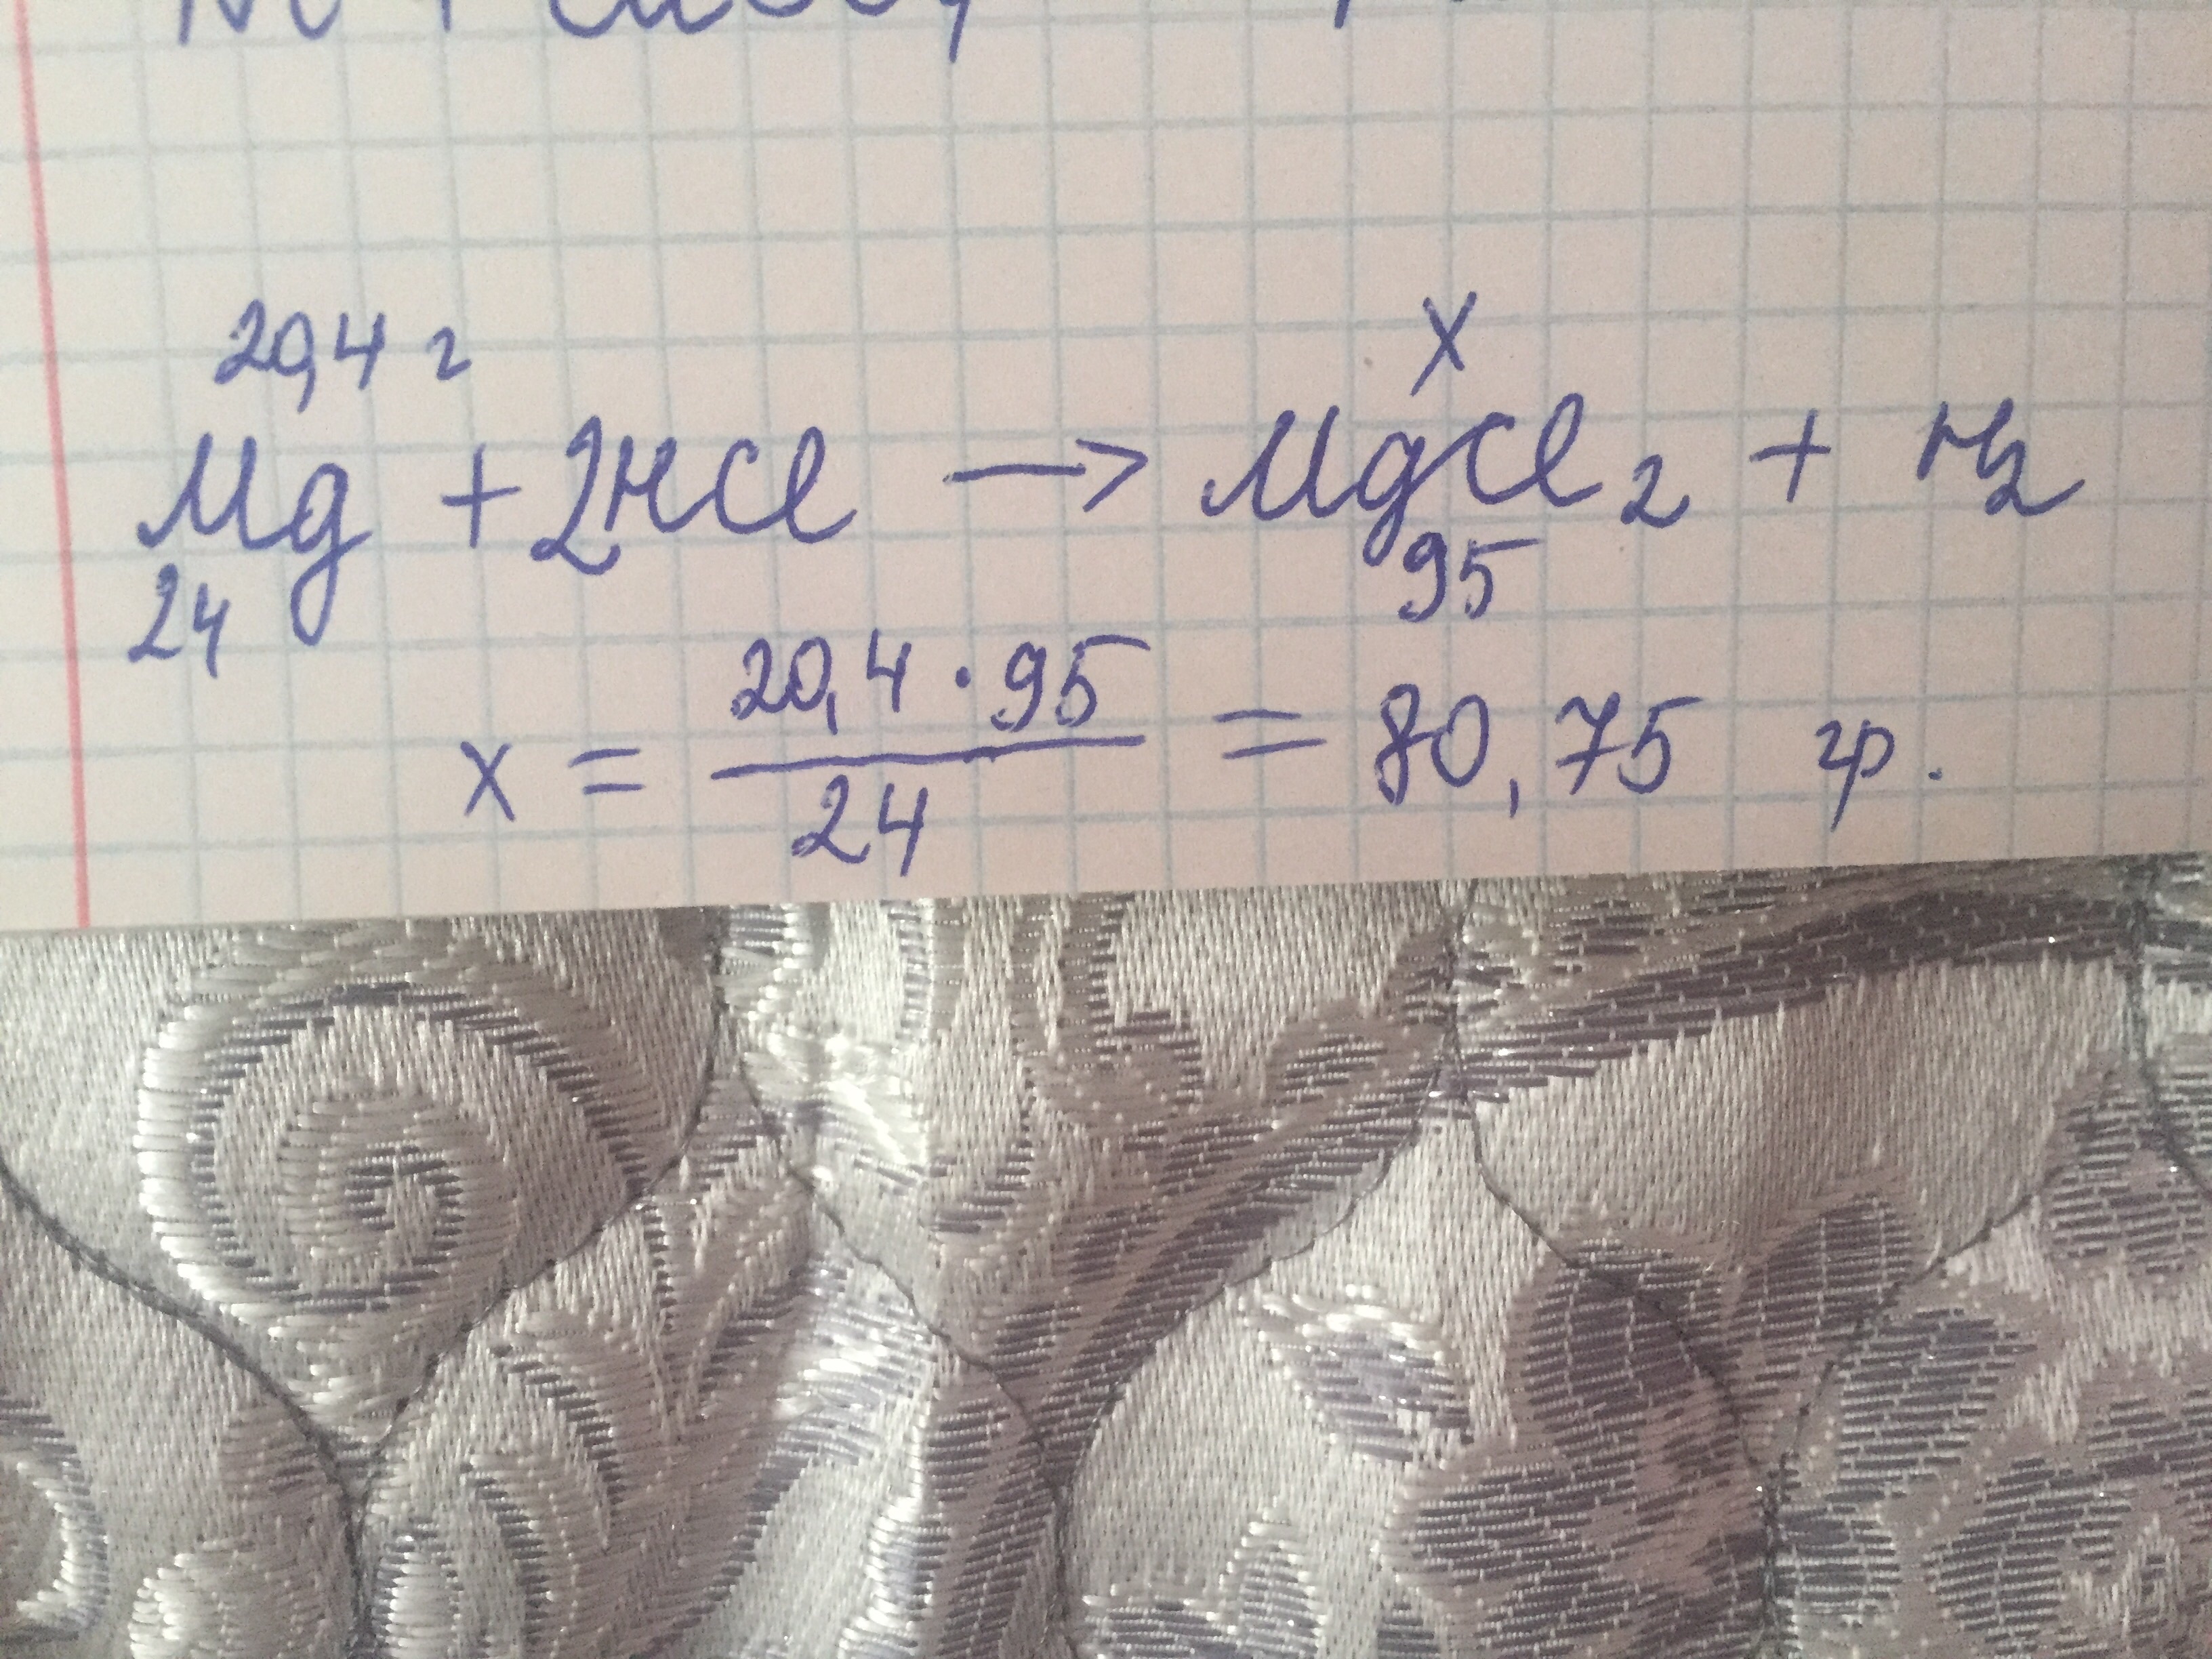 20,4 г
x
Mg + 2HCl → MgCl₂ + H₂
24
95
x = 20,4 · 95 / 24 = 80,75 гр.